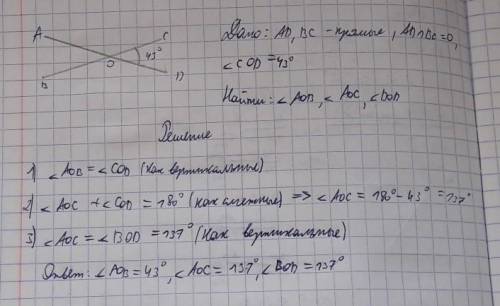 A
C
43°
O
B
D
Дано: AD, BC - прямые, AD∩BC=O,
∠COD=43°
Найти: ∠AOB, ∠AOC, ∠BOD
Решение
1) ∠AOB = ∠COD (как вертикальные)
2) ∠AOC + ∠COD = 180° (как смежные) => ∠AOC = 180° - 43° = 137°
3) ∠AOC = ∠BOD = 137° (как вертикальные)
Ответ: ∠AOB = 43°, ∠AOC = 137°, ∠BOD = 137°